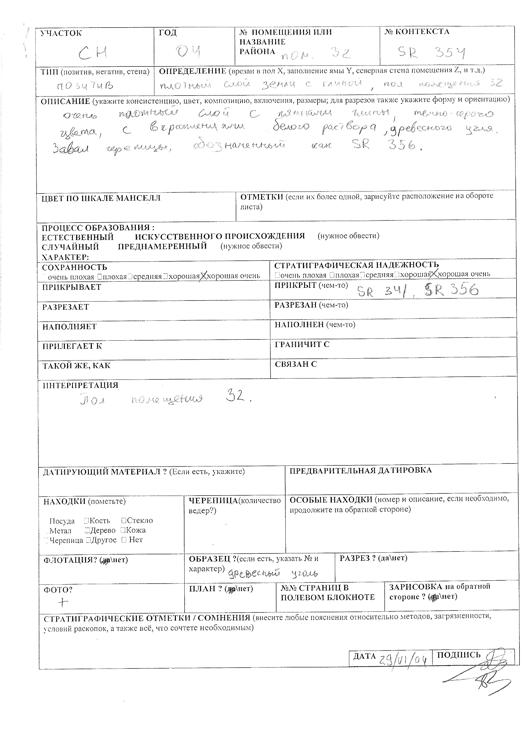 УЧАСТОК ГОД № ПОМЕЩЕНИЯ ИЛИ № КОНТЕКСТА
НАЗВАНИЕ
CH 04 РАЙОНА пом. 32 SR 354
ТИП (позитив, негатив, стена) ОПРЕДЕЛЕНИЕ (врезан в пол X, заполнение ямы Y, северная стена помещения Z, и т.д.)
позитив плотный слой земли с глиной, пол помещения 32
ОПИСАНИЕ (укажите консистенцию, цвет, композицию, включения, размеры; для разрезов также укажите форму и ориентацию)
очень плотный слой с пятнами глины, темно-серого
цвета, с вкраплениями белого раствора, древесного угля.
Завал черепицы, обозначенный как SR 356.
ЦВЕТ ПО ШКАЛЕ МАНСЕЛЛ ОТМЕТКИ (если их более одной, зарисуйте расположение на обороте
листа)
ПРОЦЕСС ОБРАЗОВАНИЯ :
ЕСТЕСТВЕННЫЙ ИСКУССТВЕННОГО ПРОИСХОЖДЕНИЯ (нужное обвести)
СЛУЧАЙНЫЙ ПРЕДНАМЕРЕННЫЙ (нужное обвести)
ХАРАКТЕР:
СОХРАННОСТЬ СТРАТИГРАФИЧЕСКАЯ НАДЕЖНОСТЬ
очень плохая □плохая□средняя□хорошая☒хорошая очень □очень плохая □плохая□средняя□хорошая☒хорошая очень
ПРИКРЫВАЕТ ПРИКРЫТ (чем-то) SR 341, SR 356
РАЗРЕЗАЕТ РАЗРЕЗАН (чем-то)
НАПОЛНЯЕТ НАПОЛНЕН (чем-то)
ПРИЛЕГАЕТ К ГРАНИЧИТ С
ТАКОЙ ЖЕ, КАК СВЯЗАН С
ИНТЕРПРЕТАЦИЯ
Пол помещения 32.
ДАТИРУЮЩИЙ МАТЕРИАЛ ? (Если есть, укажите) ПРЕДВАРИТЕЛЬНАЯ ДАТИРОВКА
НАХОДКИ (пометьте) ЧЕРЕПИЦА(количество ОСОБЫЕ НАХОДКИ (номер и описание, если необходимо,
ведер?) продолжите на обратной стороне)
Посуда □Кость □Стекло
Метал □Дерево □Кожа
□Черепица □Другое □ Нет
ФЛОТАЦИЯ? (да\нет) ОБРАЗЕЦ ?(если есть, указать № и РАЗРЕЗ ? (да\нет)
характер) древесный уголь
ФОТО? ПЛАН ? (да\нет) №№ СТРАНИЦ В ЗАРИСОВКА на обратной
+ ПОЛЕВОМ БЛОКНОТЕ стороне ? (да\нет)
СТРАТИГРАФИЧЕСКИЕ ОТМЕТКИ / СОМНЕНИЯ (внесите любые пояснения относительно методов, загрязненности,
условий раскопок, а также всё, что сочтете необходимым)
ДАТА 29/VI/04 ПОДПИСЬ